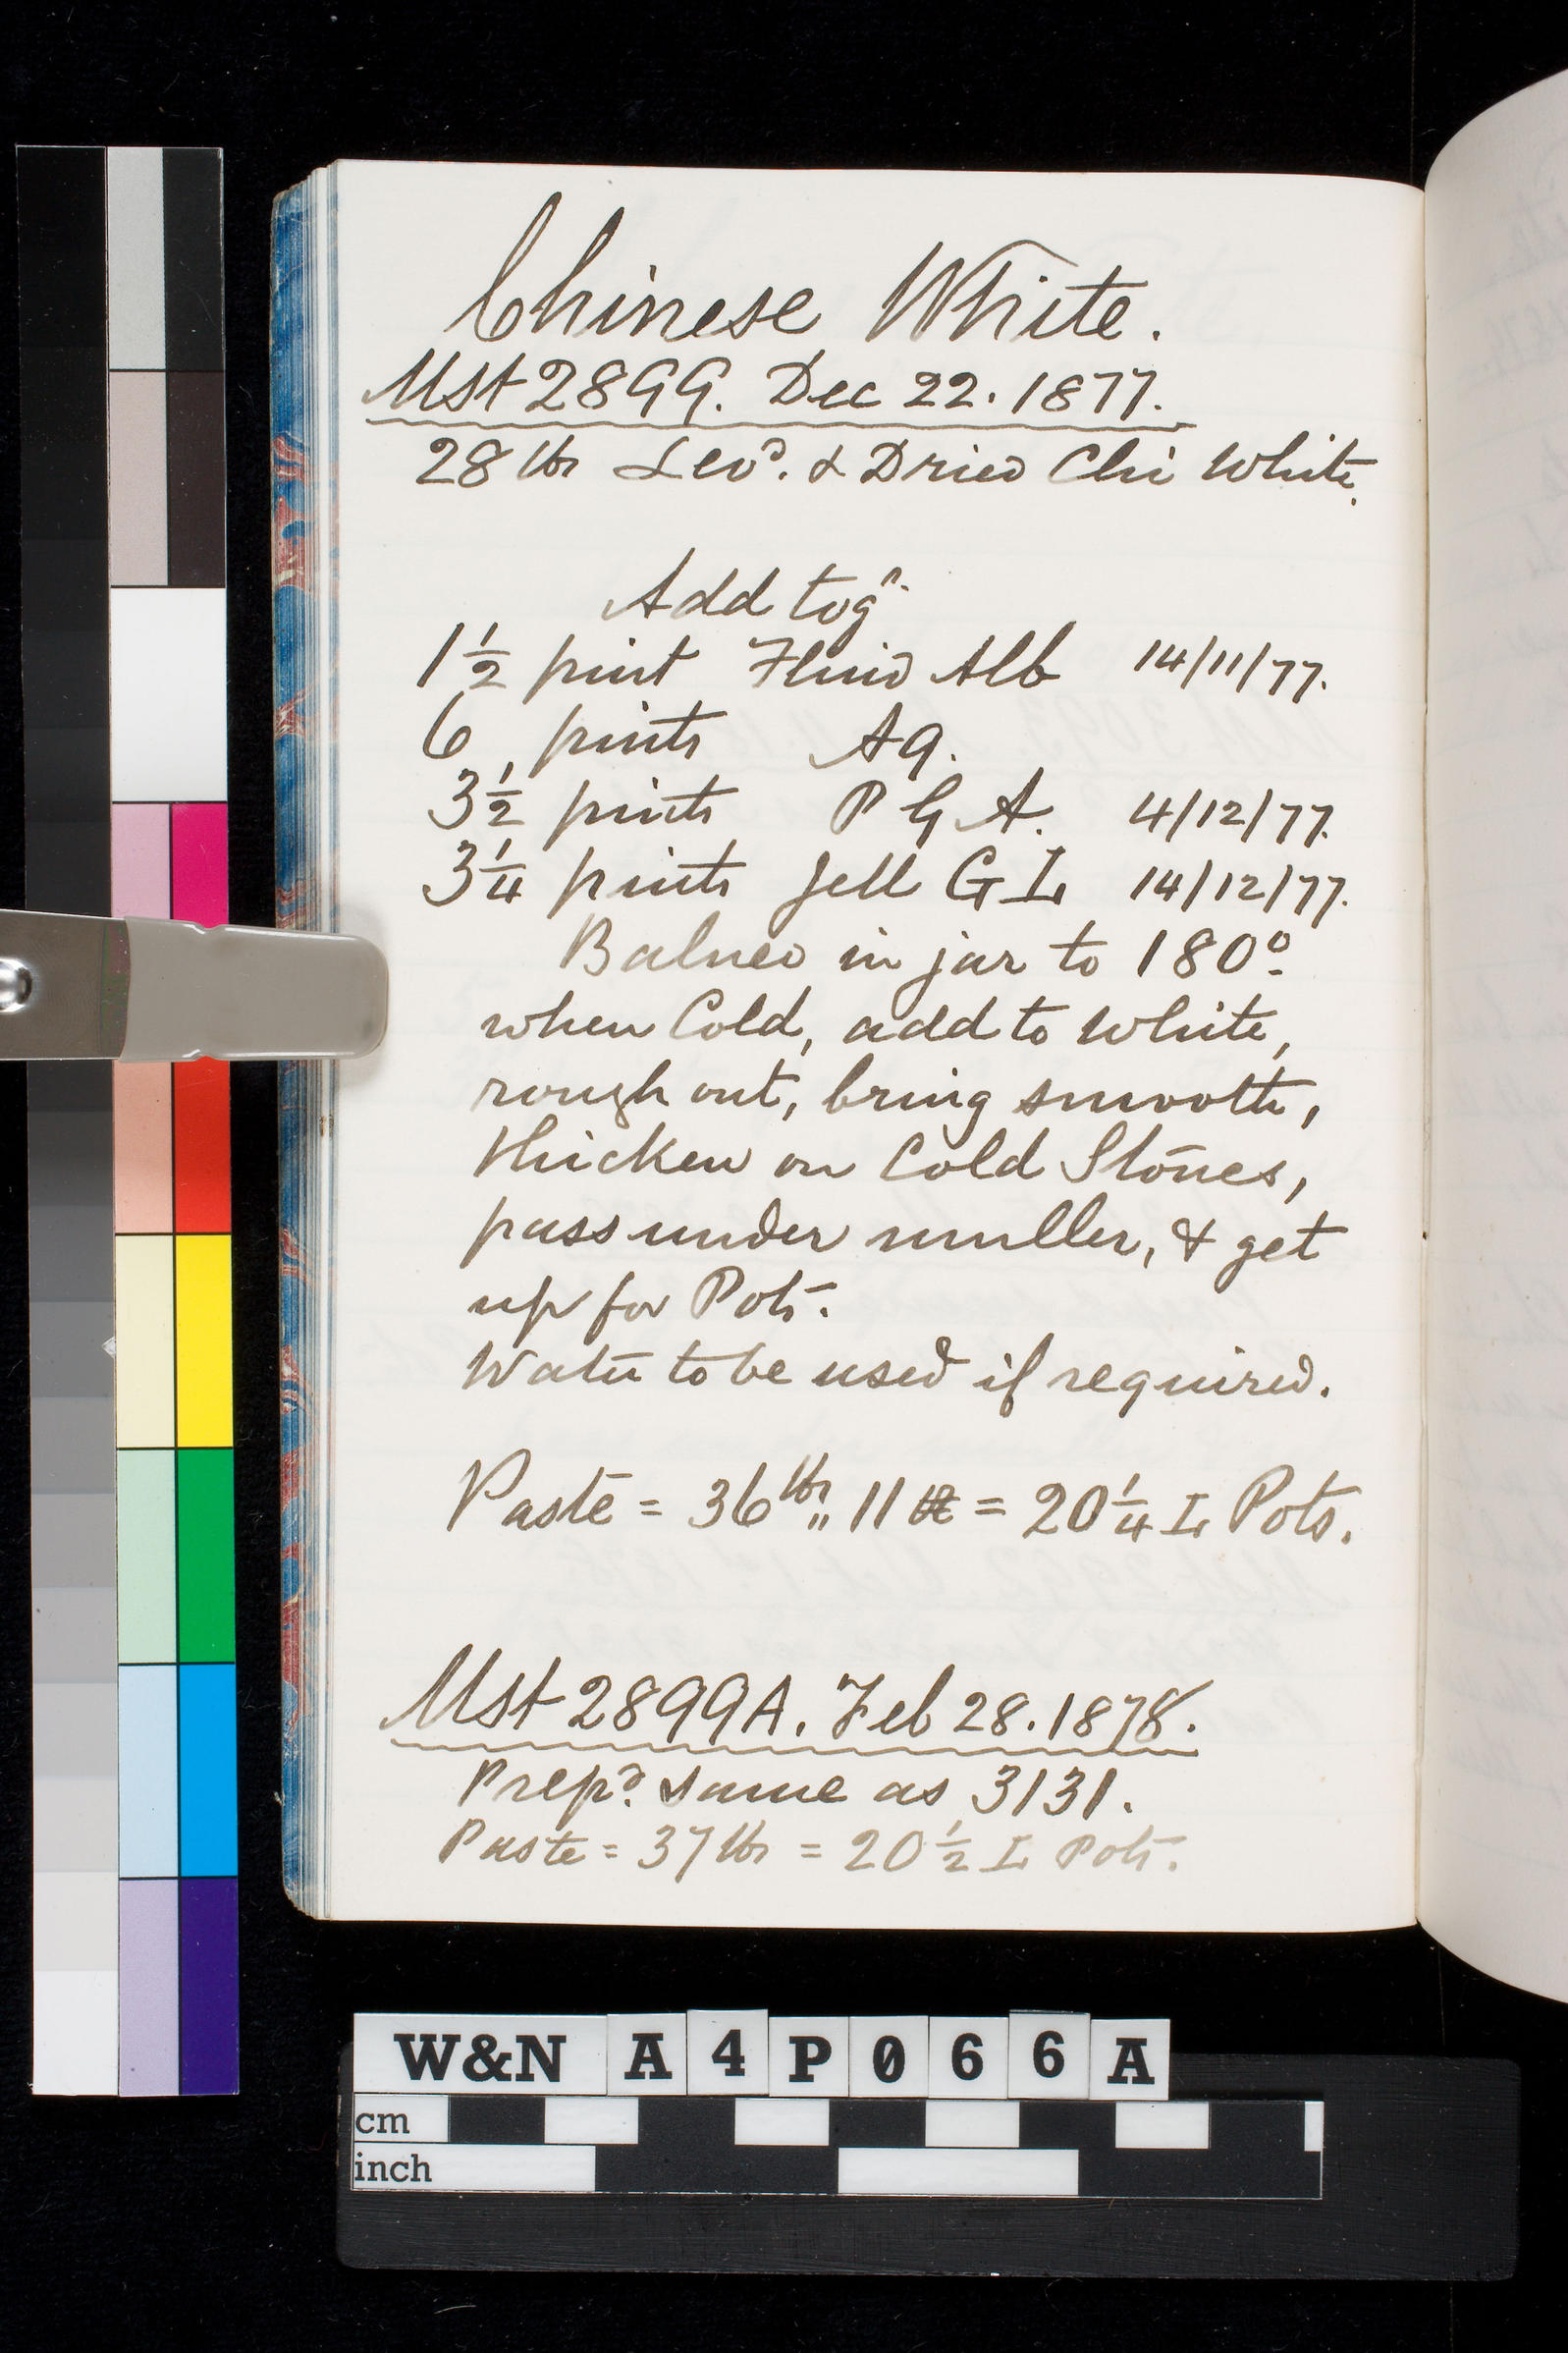 Chinese White.
Mst 2899. Dec 22. 1877.
28 lbs Levd. & Dried Chi White.
Add togr.
1½ pint Fluid Alb 14/11/77.
6 pints Aq.
3½ pints P G A. 4/12/77.
3¼ pints Jell G L 14/12/77.
Balneo in jar to 180º
when Cold, add to White,
rough out, bring smooth,
thicken on Cold Stones,
pass under muller, & get
up for Pots.
Water to be used if required.
Paste = 36 lbs „ 11 = 20¼ L Pots.
Mst 2899A. Feb 28. 1878.
Prepd. same as 3131.
Paste = 37 lbs = 20½ L Pots.
W&N A4P066A
cm
inch